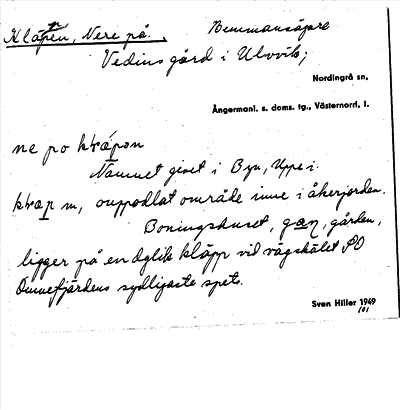 Kläpen, Nere på. Hemmansägare
Vedins gård i Ulvvik;
Nordingrå sn,
Ångermanl. s. doms. tg., Västernorrl. l.
ne po
Namnet givet i Byn, Uppe i
m, ouppodlat område inne i åkerjorden.
Boningshuset, gården,
ligger på en dylik kläpp vid vägskälet SO
Omnefjärdens sydligaste spets.
Sven Hiller 1949
101